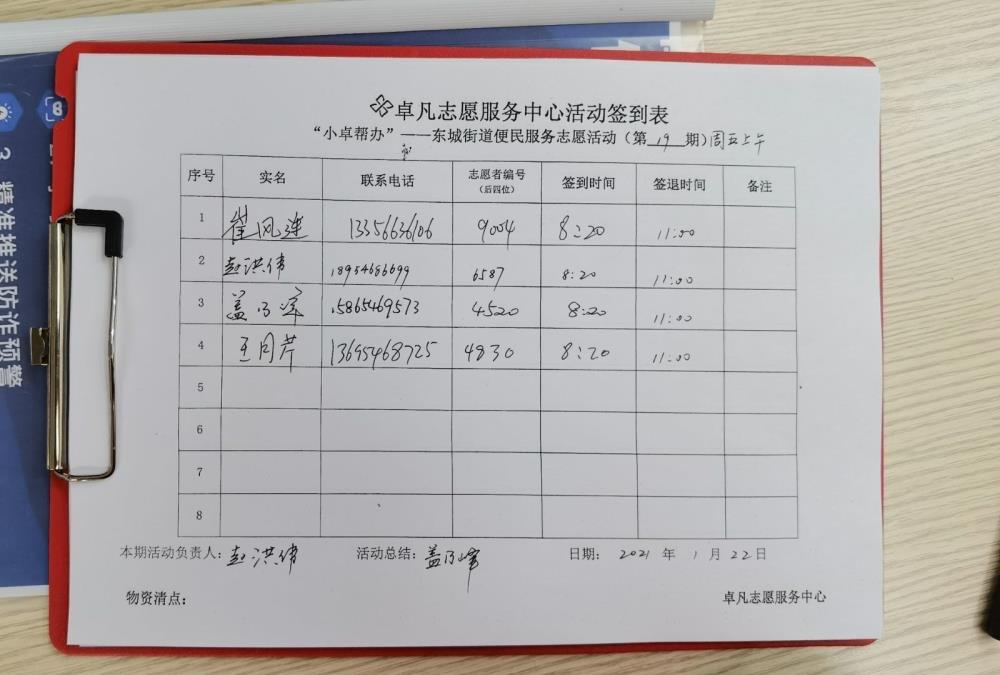 卓凡志愿服务中心活动签到表
“小卓帮办”——东城街道便民服务志愿活动（第 19 期）周五上午
序号 实名 联系电话 志愿者编号（后四位） 签到时间 签退时间 备注
1 崔风莲 13356636106 9004 8:20 11:00
2 赵洪伟 18954686699 6587 8:20 11:00
3 盖乃峰 15865469573 4520 8:20 11:00
4 王同芹 13695468725 4830 8:20 11:00
5
6
7
8
本期活动负责人：赵洪伟 活动总结：盖乃峰 日期：2021 年 1 月 22 日
物资清点： 卓凡志愿服务中心
3 精准推送防诈预警